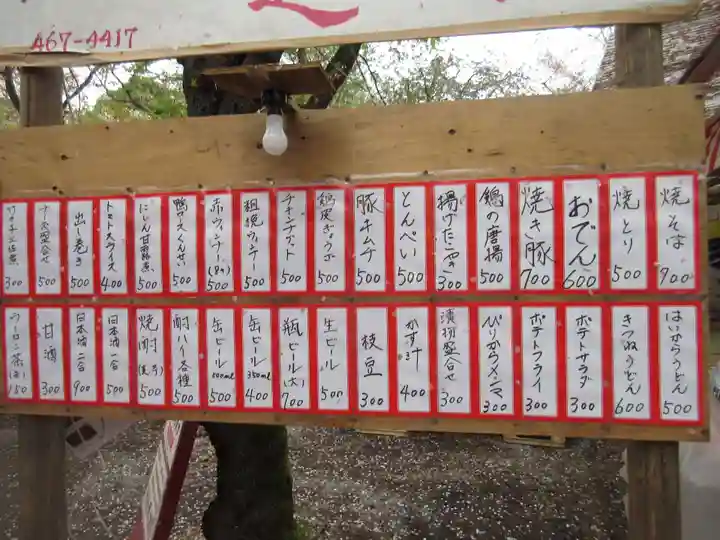 467-4417
焼そば 900
焼とり 500
おでん 600
焼き豚 700
鶏の唐揚 500
揚げたこやき 300
とんぺい 500
豚キムチ 500
鶏皮ぎょうざ 500
500
粗挽ウィンナー 500
赤ウィンナー 500
鴨ロースくんせい 500
にしん甘露煮 500
トマトスライス 400
出し巻き 500
チーズ盛合せ 500
300
はいからうどん 500
きつねうどん 600
ポテトサラダ 300
ポテトフライ 300
ぴりからメンマ 300
漬物盛合せ 300
かす汁 400
枝豆 300
生ビール 500
瓶ビール(大) 700
缶ビール 350ml 400
缶ビール 500ml 500
酎ハイ各種 500
焼酎 500
日本酒一合 500
日本酒二合 900
甘酒 300
ウーロン茶 150